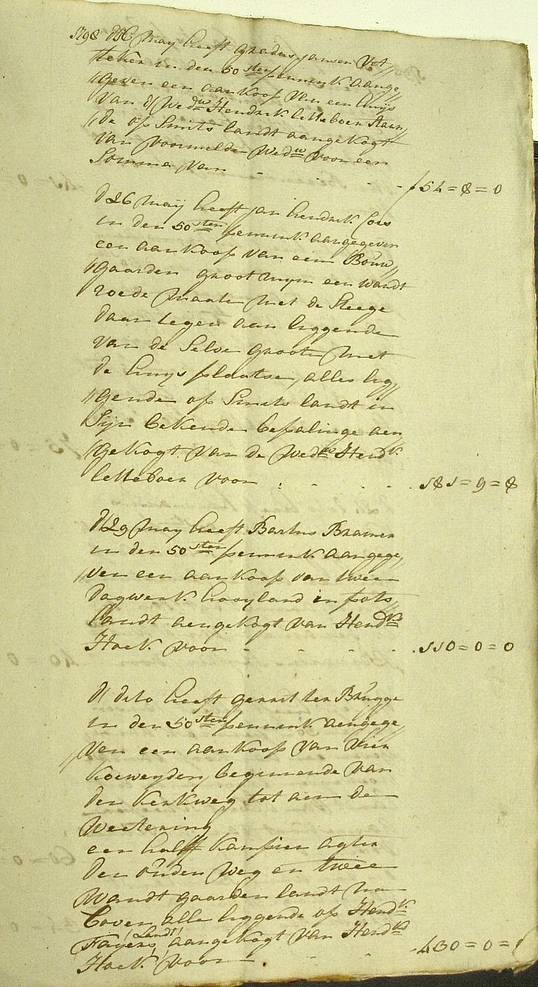 1798 d 26 may heeft gradus jansen Vol„
teken in den 50 sten penninck aange„
„geven een aankoop van een huijs
van d Wedwe Hendrik Letteboer staen„
„de op Smits landt aangekogt
van voormelde Wedwe voor een
Somma van - - - f 54=8=0
d 26 maij heeft jan hendrik Cois
in den 50 sten penninck aangegeven
een aankoop van een Bouw„
„gaarden groot ruijm een wardt
roede maate met de Steege
daar tegen aan liggende
van de Selve groote met
de huijs plaatse, alles leg„
„gende op Smits landt in
Sijn bekende bepalinge aen
gekogt van de Wedwe Hendk
Letteboer voor - - - 181=9=8
d 29 maij heeft Bartus Bramer
in den 50 sten penninck aangege„
„ven een aankoop van twee
dagwerk hooyland in
landt aengekogt van Hendk
Hoek voor - - - 110=0=0
d dito heeft gerrit ter Brugge
in den 50 sten penninck aengege„
„ven een aankoop van vier
koeweyden, beginnende van
den kerkweg tot aen de
Weetering
een halff kampien agter
den ouden weg en twee
wandt gaarden landt na
boven, alle liggende op Hendk
Fayers Landt, aangekogt van Hendk
Hoek voor - - 430=0=0